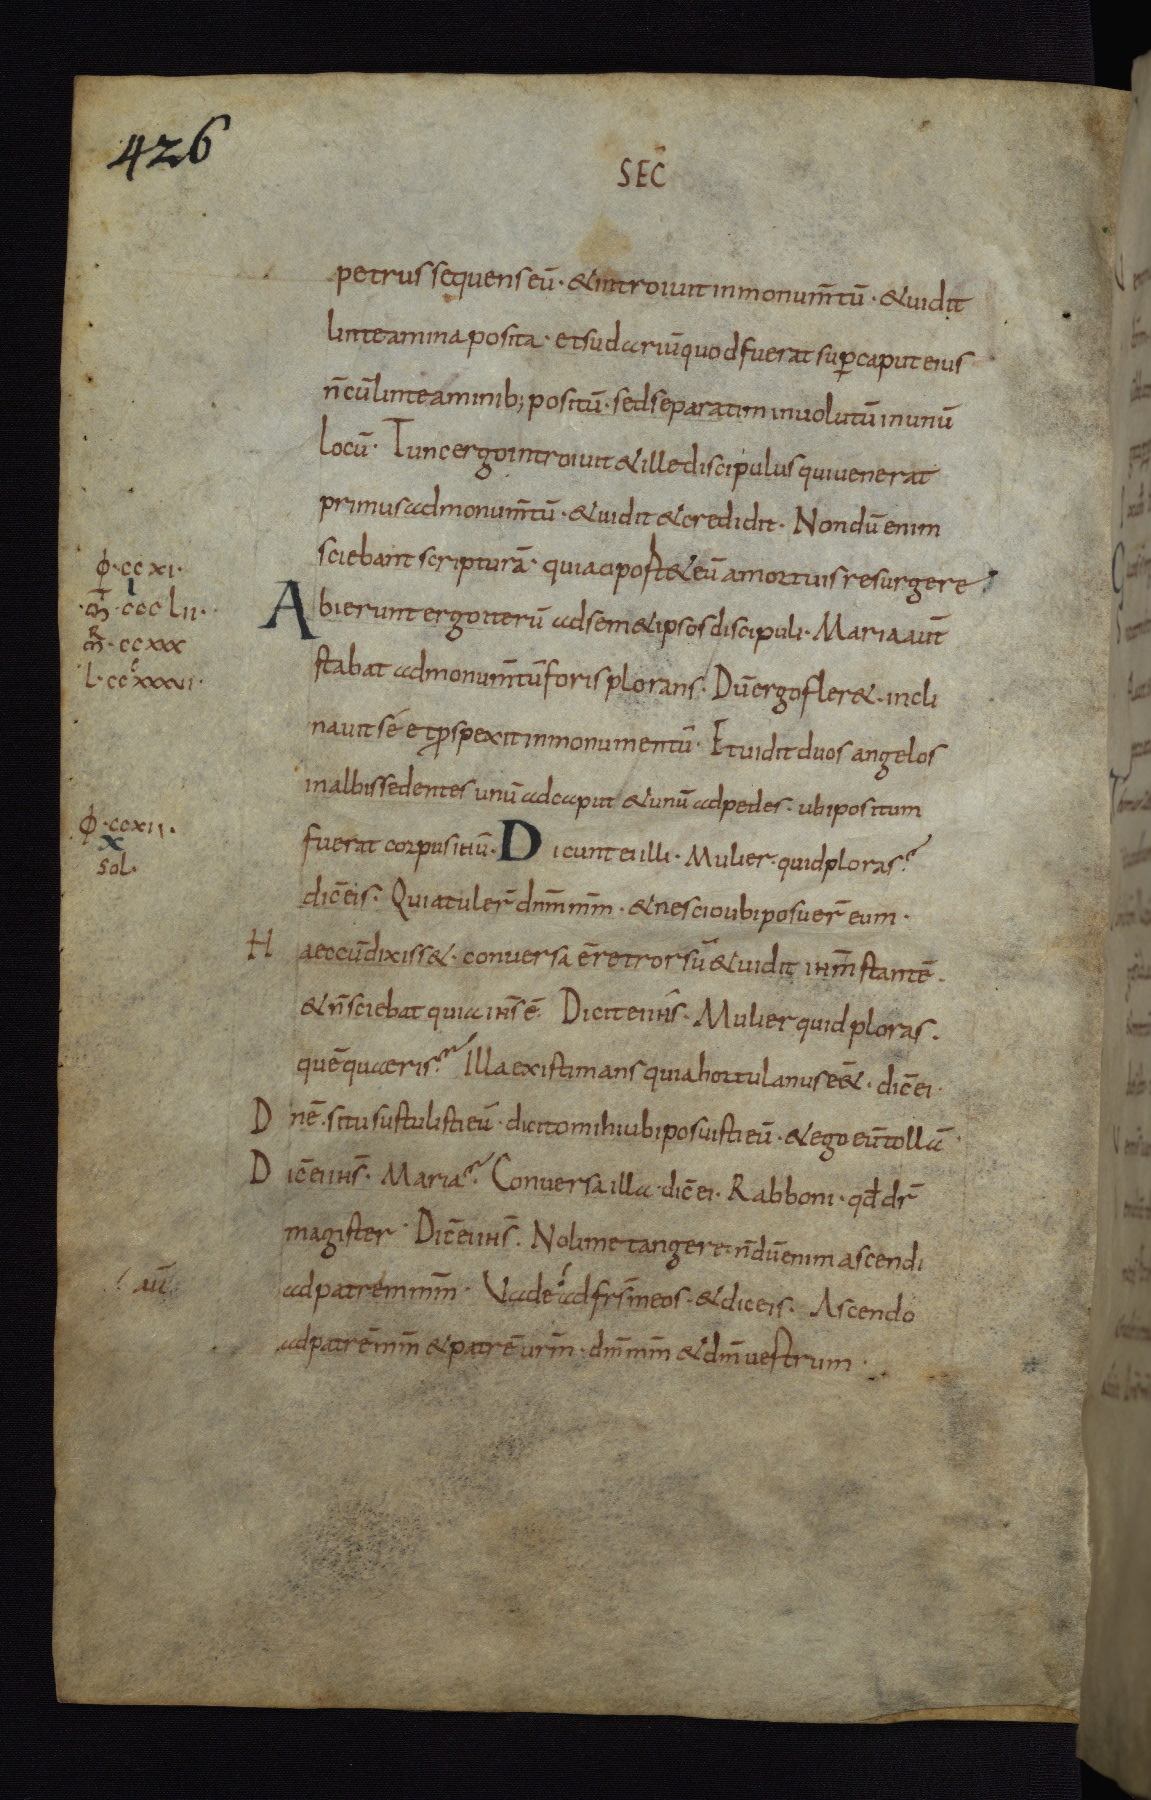 426
SEC̄
petrus sequens eū · & introiuit in monum̄tū · & uidit
linteamina posita · et sudariū quod fuerat sup̱ caput eius
n̄ cū linteaminib; positū · sed separatim inuolutū in unū
locū · Tunc ergo introiuit & ille discipulus qui uenerat
primus ad monum̄tū · & uidit & credidit · Nondū enim
sciebant scripturā · quia oport& eū a mortuis resurgere
φ · ccxi ·
i
m̄ · ccclii ·
m̄ · ccxxx
l · ccxxxvi ·
Abierunt ergo iterū ad sem&ipsos discipuli · Maria aut̄
stabat ad monum̄tū foris plorans · Dū ergo fler& · incli
nauit se et p̱spexit in monumentū · Et uidit duos angelos
in albis sedentes unū ad caput & unū ad pedes · ubi positum
φ · ccxii ·
x
sol ·
fuerat corpus ih̄u · Dicunt ei illi · Mulier · quid ploras ?
dic̄ eis · Quia tuler̄ dn̄m m̄m · & nescio ubi posuer̄ eum ·
Haec cū dixiss& · conuersa ē retrorsū & uidit ih̄m stantē ·
& n̄ sciebat quia ih̄s ē · Dicit ei ih̄s · Mulier quid ploras ·
quē quaeris ? Illa existimans quia hortulanus eē& · dic̄ ei ·
Dn̄e · si tu sustulisti eū · dicito mihi ubi posuisti eū · & ego eū tollā ·
Dic̄ ei ih̄s · Maria ? Conuersa illa · dic̄ ei · Rabboni · qđ dr̄
magister · Dic̄ ei ih̄s · Noli me tangere · n̄dū enim ascendi
aū
ad patrem m̄m · Uade ad fr̄s meos · & dic eis · Ascendo
ad patrē m̄m & patrē ur̄m · dm̄ m̄m & dm̄ uestrum ·